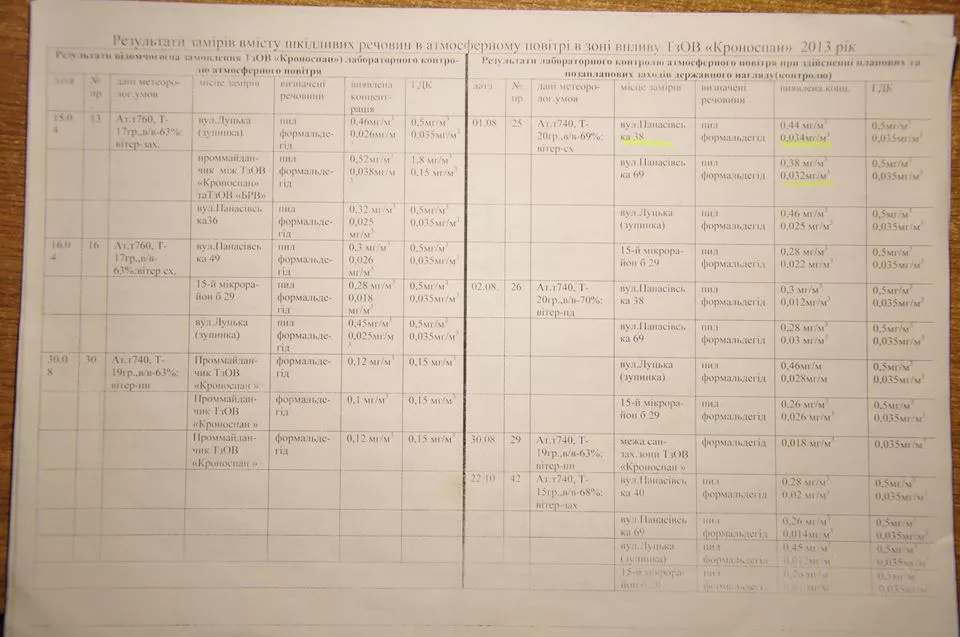 Результати замірів вмісту шкідливих речовин в атмосферному повітрі в зоні впливу ТзОВ «Кроноспан» 2013 рік
Результати відомчого(на замовлення ТзОВ «Кроноспан») лабораторного контро-
лю атмосферного повітря
дата № дані метеоро- місце замірів визначені виявлена ГДК
пр. лог.умов речовини концент-
рація
15.0 13 Ат.т760, Т- вул.Луцька пил 0,46мг/м³ 0,5мг/м³
4 17гр.,в/в-63%: (зупинка) формальде- 0,026мг/м 0,035мг/м³
вітер-зах. гід ³
проммайдан- пил 0,52мг/м³ 1,8 мг/м³
чик між ТзОВ формальде- 0,038мг/м 0,15 мг/м³
«Кроноспан» гід ³
таТзОВ «БРВ»
вул.Панасівсь пил 0,32 мг/м³ 0,5мг/м³
ка36 формальде- 0,025 0,035мг/м³
гід мг/м³
16.0 16 Ат.т760, Т- вул.Панасівсь пил 0,3 мг/м³ 0,5мг/м³
4 17гр.,в/в- ка 49 формальде- 0,026 0,035мг/м³
63%:вітер сх. гід мг/м³
15-й мікрора- пил 0,28 мг/м³ 0,5мг/м³
йон б 29 формальде- 0,018 0,035мг/м³
гід мг/м³
вул.Луцька пил 0,45мг/м³ 0,5мг/м³
(зупинка) формальде- 0,025мг/м 0,035мг/м³
гід ³
30.0 30 Ат.т740, Т- Проммайдан- формальде- 0,12 мг/м³ 0,15 мг/м³
8 19гр.,в/в-63%: чик ТзОВ гід
вітер-пн «Кроноспан »
Проммайдан- формальде- 0,1 мг/м³ 0,15 мг/м³
чик ТзОВ гід
«Кроноспан »
Проммайдан- формальде- 0,12 мг/м³ 0,15 мг/м³
чик ТзОВ гід
«Кроноспан »
Результати лабораторного контролю атмосферного повітря при здійсненні планових та
позапланових заходів державного нагляду(контролю)
дата № дані метеоро- місце замірів визначені виявлена конц. ГДК
пр. лог.умов речовини
01.08 25 Ат.т740, Т- вул.Панасівсь пил 0,44 мг/м³ 0,5мг/м³
20гр.,в/в-69%: ка 38 формальдегід 0,034мг/м³ 0,035мг/м³
вітер-сх
вул.Панасівсь пил 0,38 мг/м³ 0,5мг/м³
ка 69 формальдегід 0,032мг/м³ 0,035мг/м³
вул.Луцька пил 0,46 мг/м³ 0,5мг/м³
(зупинка) формальдегід 0,025 мг/м³ 0,035мг/м³
15-й мікрора- пил 0,28 мг/м³ 0,5мг/м³
йон б 29 формальдегід 0,022 мг/м³ 0,035мг/м³
02.08. 26 Ат.т740, Т- вул.Панасівсь пил 0,3 мг/м³ 0,5мг/м³
20гр.,в/в-70%: ка 38 формальдегід 0,012мг/м³ 0,035мг/м³
вітер-пд
вул.Панасівсь пил 0,28 мг/м³ 0,5мг/м³
ка 69 формальдегід 0,03 мг/м³ 0,035мг/м³
вул.Луцька пил 0,46мг/м 0,5мг/м³
(зупинка) формальдегід 0,028мг/м 0,035мг/м³
15-й мікрора- пил 0,26 мг/м³ 0,5мг/м³
йон б 29 формальдегід 0,026 мг/м³ 0,035мг/м³
30.08 29 Ат.т740, Т- межа сан- формальдегід 0,018 мг/м³ 0,035мг/м³
19гр.,в/в-63%: зах.зони ТзОВ
вітер-пн «Кроноспан »
22.10 42 Ат.т740, Т- вул.Панасівсь пил 0,28 мг/м³ 0,5мг/м³
15гр.,в/в-68%: ка 40 формальдегід 0,02 мг/м³ 0,035мг/м³
вітер-зах
вул.Панасівсь пил 0,26 мг/м³ 0,5мг/м³
ка 69 формальдегід 0,014мг/м³ 0,035мг/м³
вул.Луцька пил 0,45 мг/м³ 0,5мг/м³
(зупинка) формальдегід 0,035мг/м³
15-й мікрора- пил 0,5мг/м³
йон формальдегід 0,035мг/м³